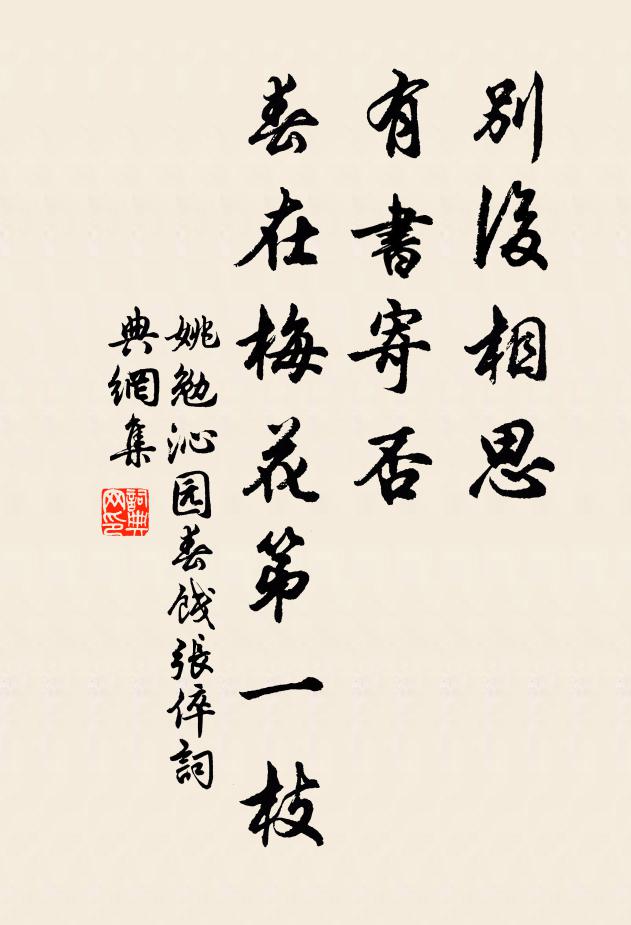 別後相思
有書寄否
春在梅花第一枝
姚勉沁园春餞張倅詞
典網集
詞典
网印